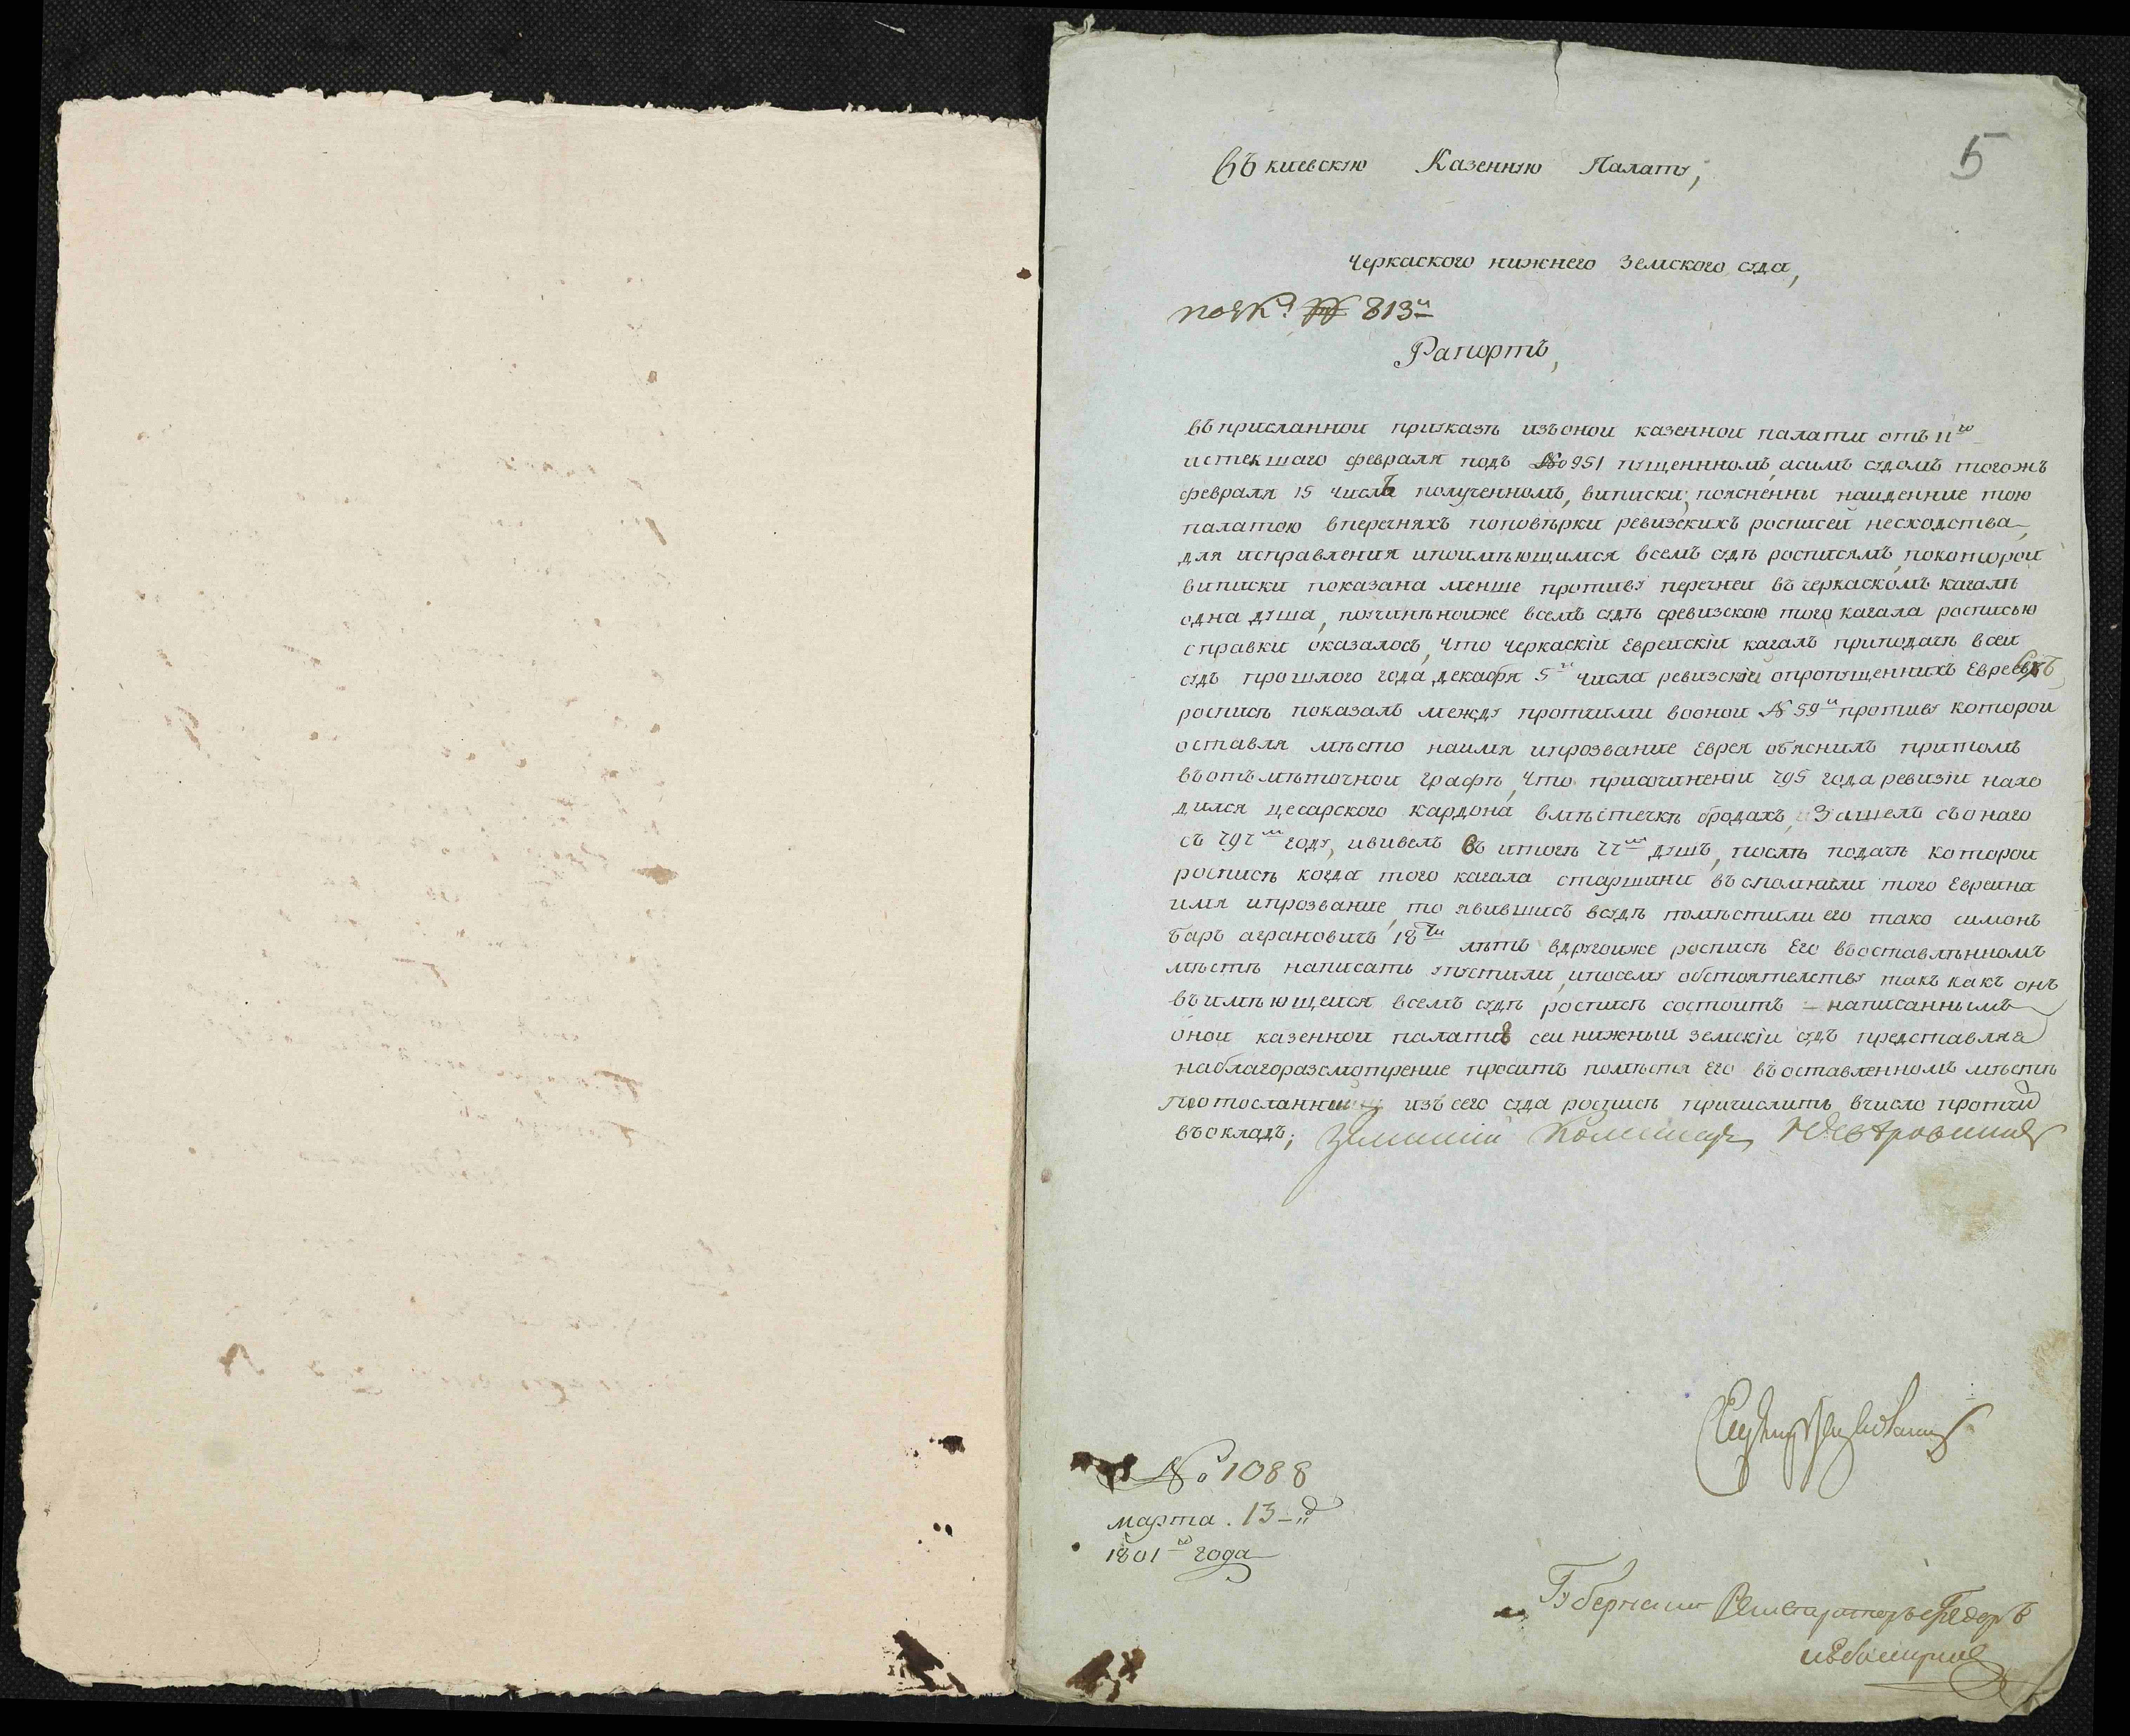 5
Въ киевскую Казенную Палату,
Черкаского нижнего Земского суда,
813
Рапортъ,
въ присланной приказъ изъ оной казенной палати отъ 11го
истекшаго февраля подъ №951 пущенномъ, асимъ судомъ тогожъ
февраля 15 числа полученномъ, виписки, пояснены найденние тою
палатою вперечняхъ поповѣрки ревизскихъ росписей несходства,
для исправления ипоимѣющимся всемъ судѣ росписямъ, покоторой
виписки показана менше противу перечней въ черкаскомъ кагалѣ
одна душа, поучинѣнойже всемъ судѣ сревизскою того кагала росписью
справки оказалось, что Черкаскій Еврейскій кагалъ приподачѣ всей
судъ прошлого года декабря 5 числа ревизскіе опропущеннихъ Евреевъ
росписѣ показалъ между протчими воднои № 59 противу которои
оставля мѣсто наимя ипрозвание Еврея обяснилъ притомъ
въотъмѣточной графѣ, что присочиненіи 795 года ревизіи нахо
дился цесарского кардона вмѣстечкѣ бродахъ, Зашелъ съонаго
съ 797 году, ививелъ въ итогѣ 77 душъ, послѣ подачѣ которои
росписѣ когда того кагала старшини въспомнили того Евреина
имя ипрозвание, то явившись всудѣ помѣстили его тако симонъ
баръ аграновичъ 18 лѣтъ вдругоиже росписѣ Его въоставлѣнномъ
мѣстѣ написать упустили, ипосему обстоятелству такъ какъ онъ
въимѣющейся всемъ судѣ росписѣ состоитъ написаннымъ
оной казенной палатѣ сей нижный земскій судъ представляя
наблагоразсмотрение проситъ помѣстя Его въоставленномъ мѣстѣ
поотосланной изъ сего суда росписѣ причислить вчисло протчий
въокладъ; Земский Комисаръ
№ 1088
марта. 13 д
1801го года
Губернский Регистраторъ Федоръ